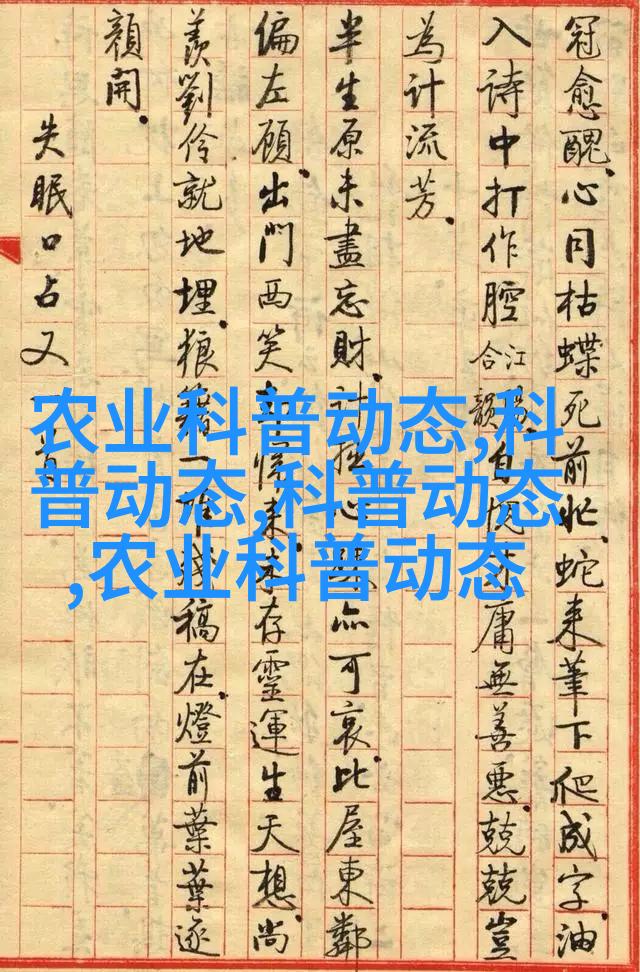 冠愈醜。心同枯蝶死前忙。蛇来筆下爬成字。油
入詩中打作腔。江合韻自愧庸無善惡。兢兢豈
為計流芳。
半生原未盡忘財。計拙心亦可哀。比屋東鄰
偏左顧。出門西笑来。存靈運生天想。尚
羨劉伶就地埋。狼籍一稿在。燈前葉葉逐
顏開。
失眠口占又一首
农业科普动态,科
普动态,科普动态
,农业科普动态